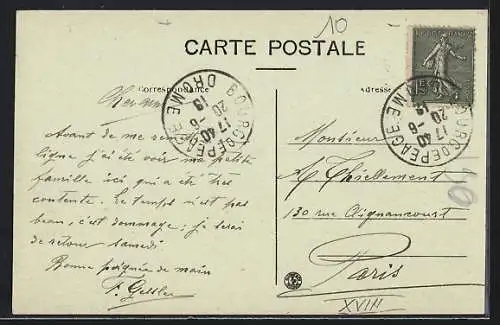 10
CARTE POSTALE
Correspondance
Adresse
BOURG DE PEAGE
17 40
20 -6
19
DROME
BOURG DE PEAGE
17 40
20 -6
19
DROME
15
Avant de me remettre en
ligne j'ai été voir ma petite
famille ici qui a été très
contente. Le temps n'est pas
beau, c'est dommage; je serai
de retour samedi
Bonne poignée de main
F.
Monsieur
A. Thiellement
130 rue Clignancourt
Paris
XVIII
10